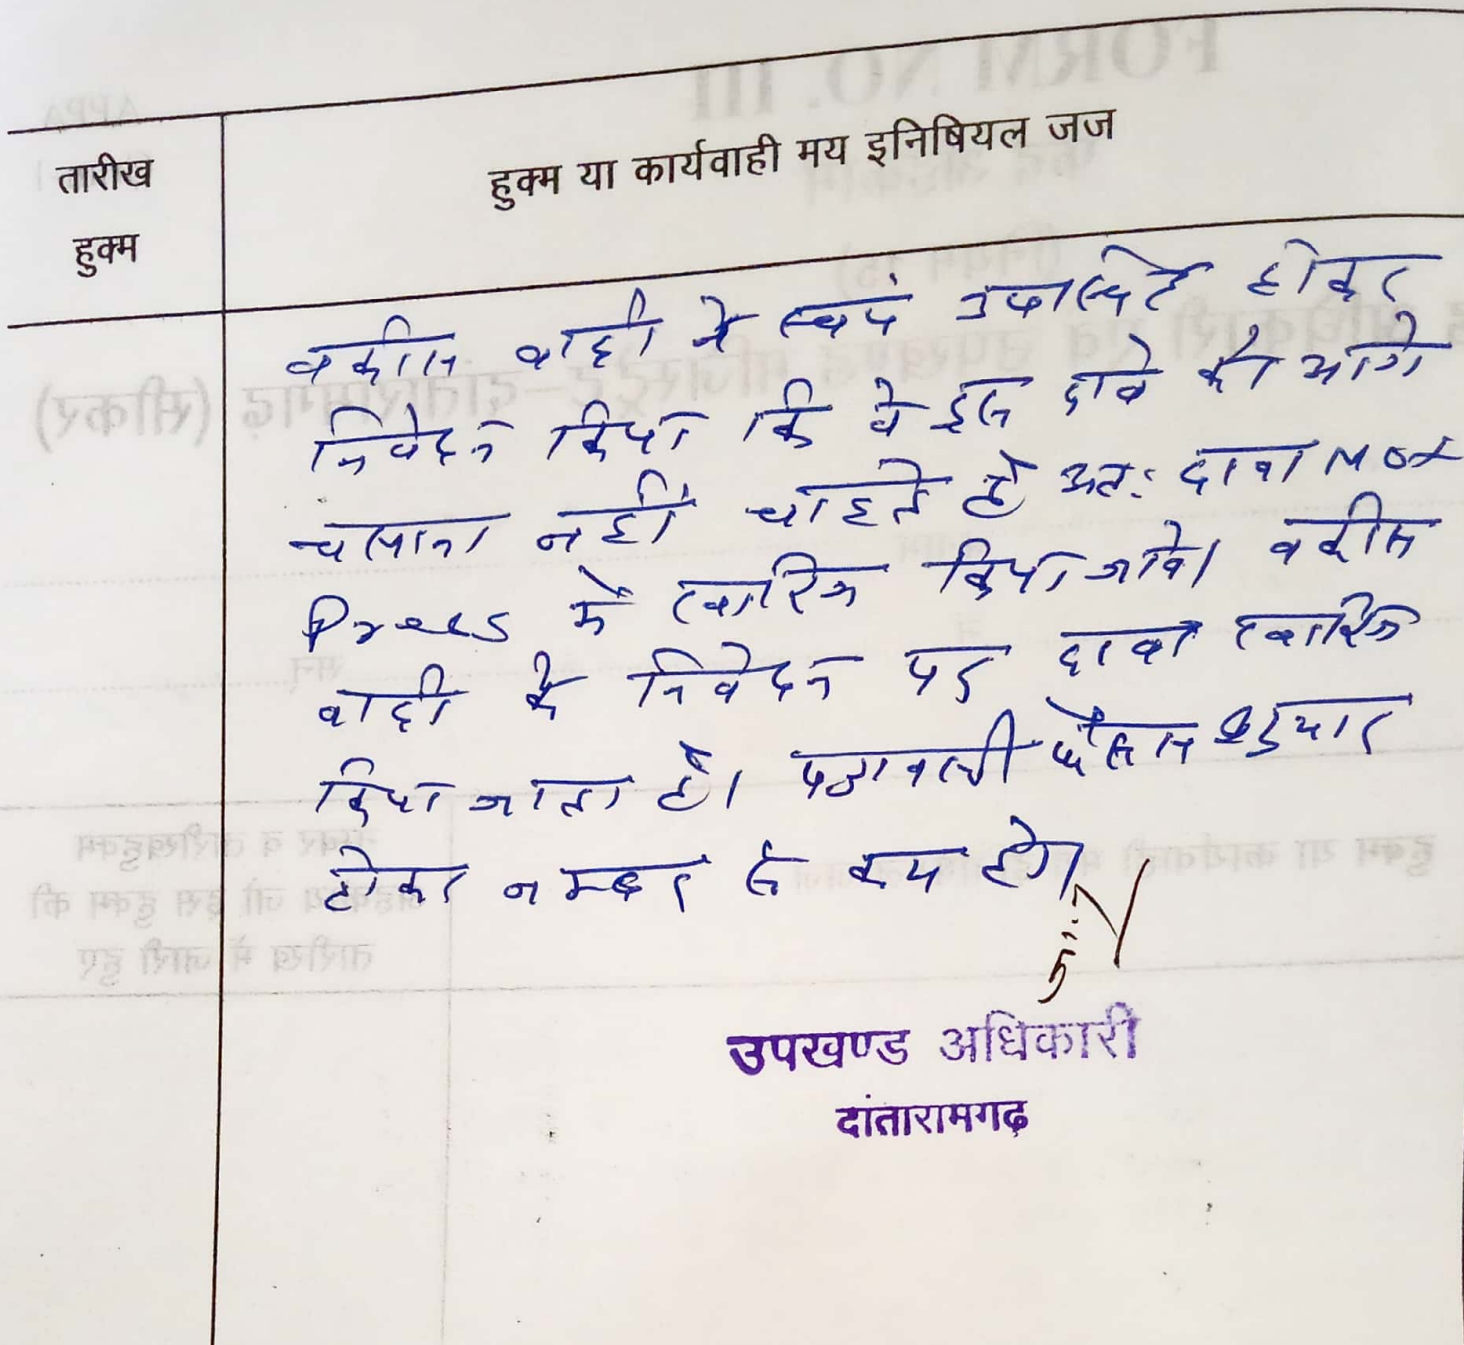 तारीख
हुक्म
हुक्म या कार्यवाही मय इनिषियल जज
वकील वादी ने स्वयं उपस्थित होकर
निवेदन किया कि वे इस दावे को आगे
चलाना नहीं चाहते है अतः दावा Not
Press में खारिज किया जावे। वकील
वादी के निवेदन पर दावा खारिज
किया जाता है। पत्रावली फैसल शुमार
होकर नम्बर से कम हो।
उपखण्ड अधिकारी
दांतारामगढ़